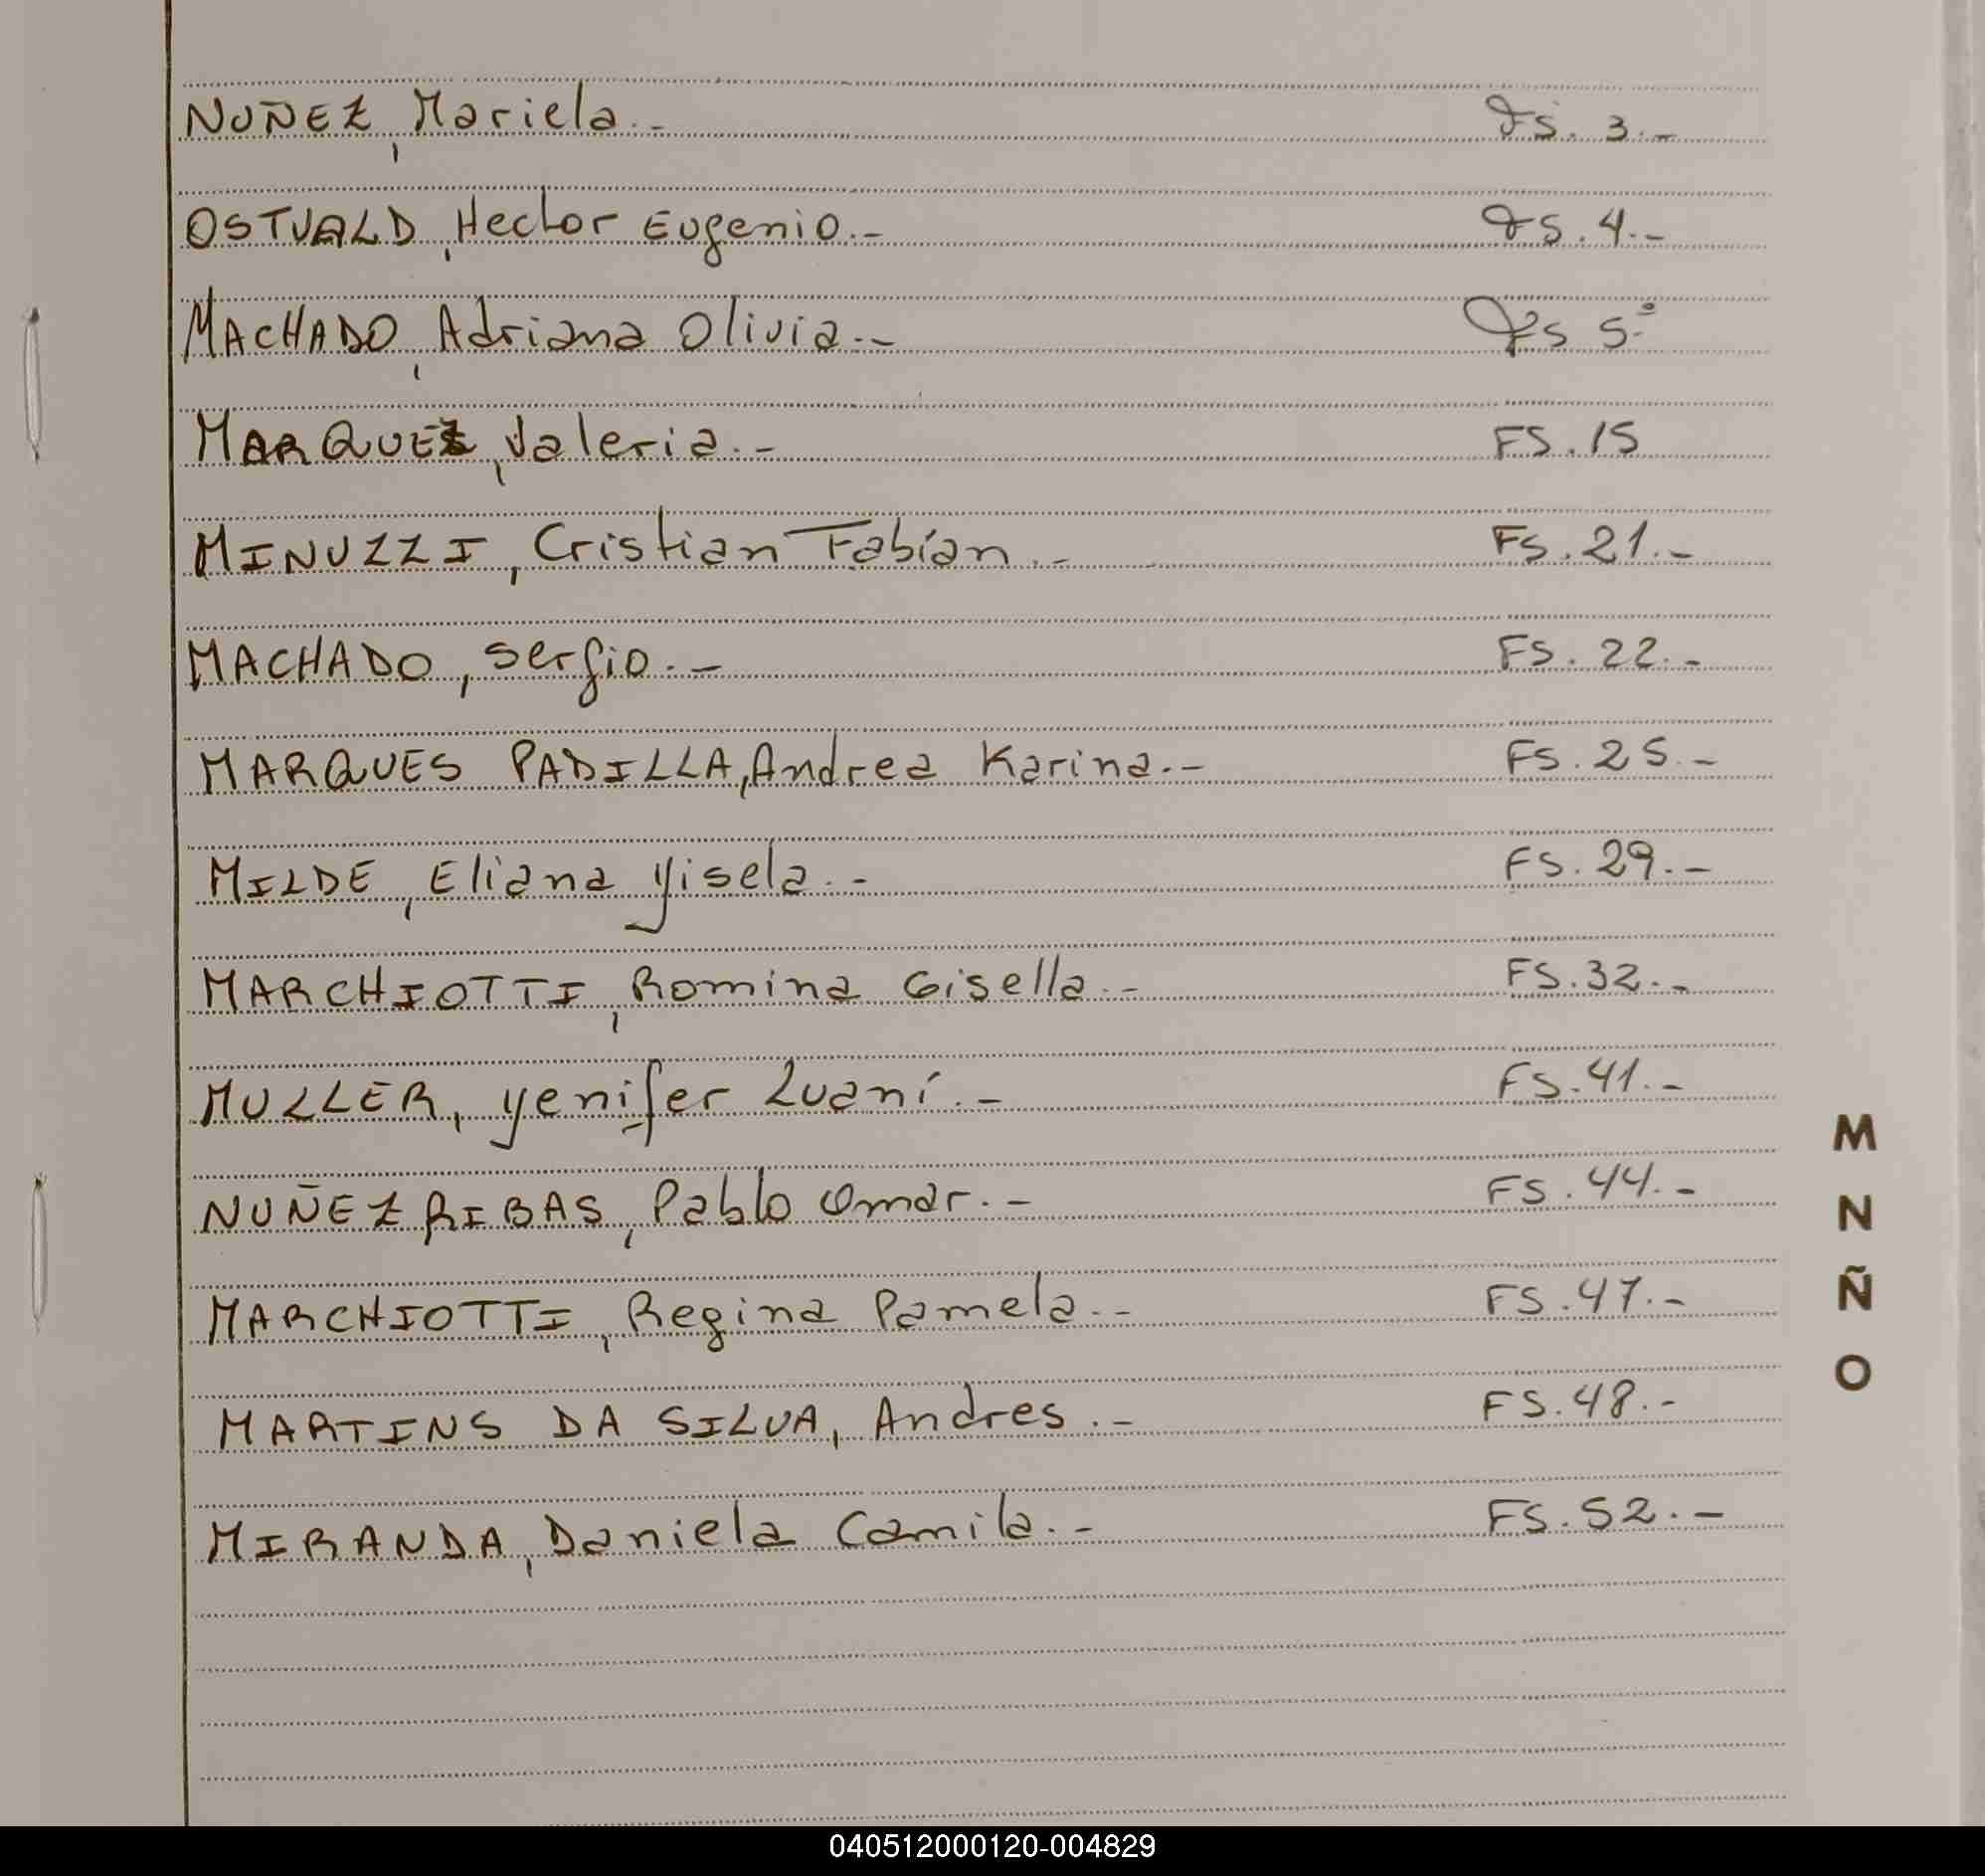 NUÑEZ, Mariela.- Fs. 3.-
OSTVALD, Hector Eugenio.- Fs. 4.-
MACHADO, Adriana Olivia.- Fs 5.-
MARQUEZ, Valeria.- FS. 15
MINUZZI, Cristian Fabían.- Fs. 21.-
MACHADO, Sergio.- FS. 22.-
MARQUES PADILLA, Andrea Karina.- FS. 25.-
MILDE, Eliana Yisela.- FS. 29.-
MARCHIOTTI, Romina Gisella.- FS. 32.-
MULLER, Yenifer Luaní.- FS. 41.-
NUÑEZ RIBAS, Pablo Omar.- FS. 44.-
MARCHIOTTI, Regina Pamela.- FS. 47.-
MARTINS DA SILVA, Andres.- FS. 48.-
MIRANDA, Daniela Camila.- FS. 52.-
M
N
Ñ
O
040512000120-004829